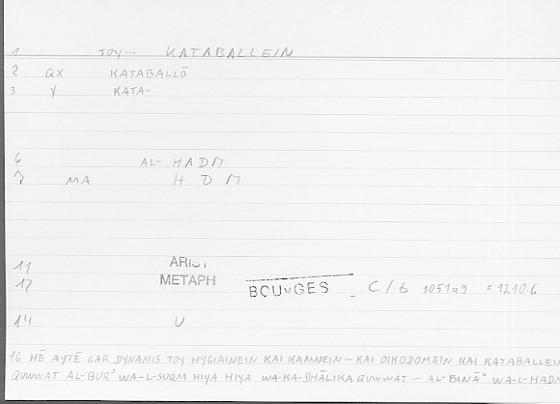 1 TOY... KATABALLEIN
2 QX KATABALLŌ
3 Y KATA-
6 AL-HADM
7 MA H D M
11 ARIST
12 METAPH BOUYGES C/b 1051a9 = 1210.6
14 U
16 HĒ AYTĒ GAR DYNAMIS TOY HYGIAINEIN KAI KAMNEIN ... KAI OIKODOMEIN KAI KATABALLEIN
QUWWAT AL-BURʾ WA-L-SUQM HIYA HIYA WA-KA-DHĀLIKA QUWWAT ... AL-BINĀʾ WA-L-HADM